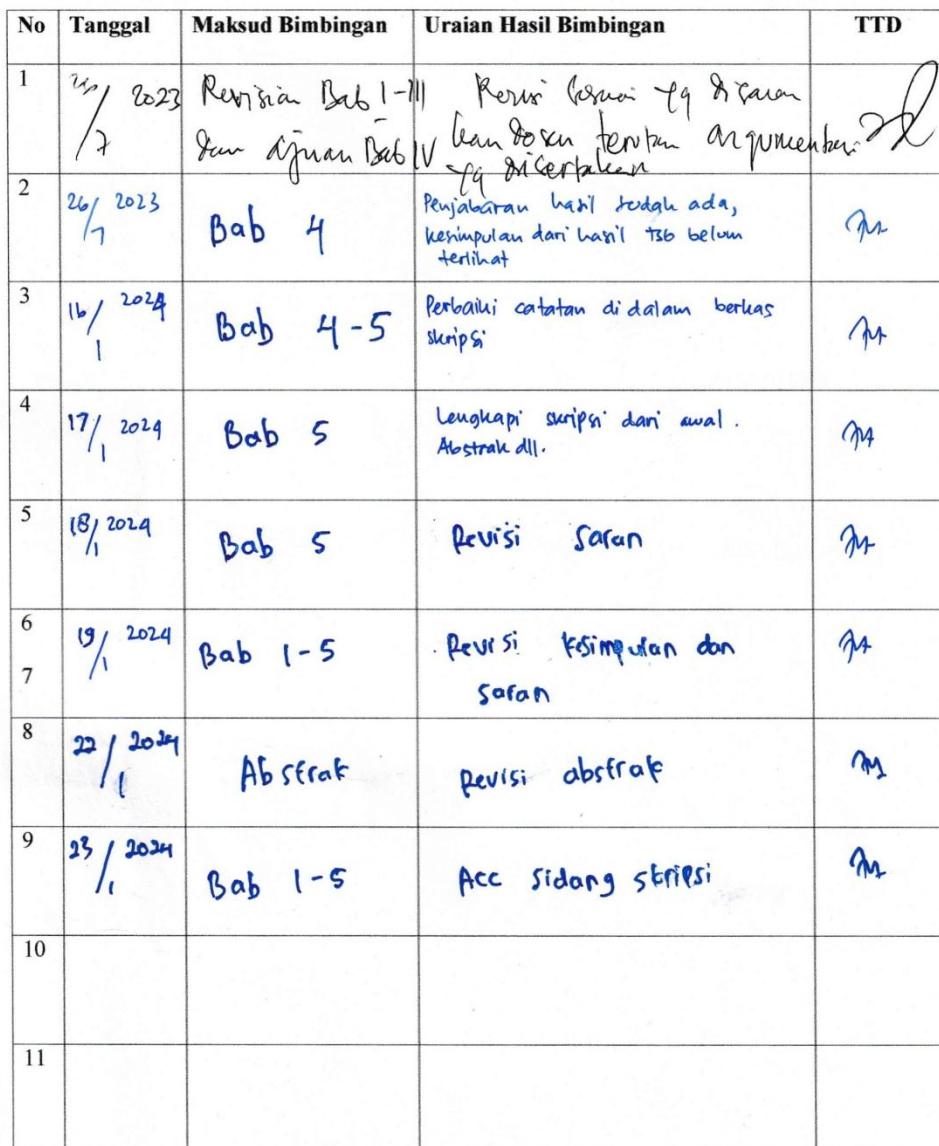 No Tanggal Maksud Bimbingan Uraian Hasil Bimbingan TTD
1 /7 2023 Revisian Bab I-III Revisi sesuai yg disaran
dan ajuan Bab IV kan dosen argumentasi
yg disertakan
2 26/7 2023 Bab 4 Penjabaran hasil sudah ada,
kesimpulan dari hasil tsb belum
terlihat
3 16/1 2024 Bab 4-5 Perbaiki catatan di dalam berkas
skripsi
4 17/1 2024 Bab 5 Lengkapi skripsi dari awal.
Abstrak dll.
5 18/1 2024 Bab 5 Revisi saran
6 19/1 2024 Bab 1-5 Revisi kesimpulan dan
7 saran
8 22/1 2024 Abstrak Revisi abstrak
9 23/1 2024 Bab 1-5 Acc sidang skripsi
10
11